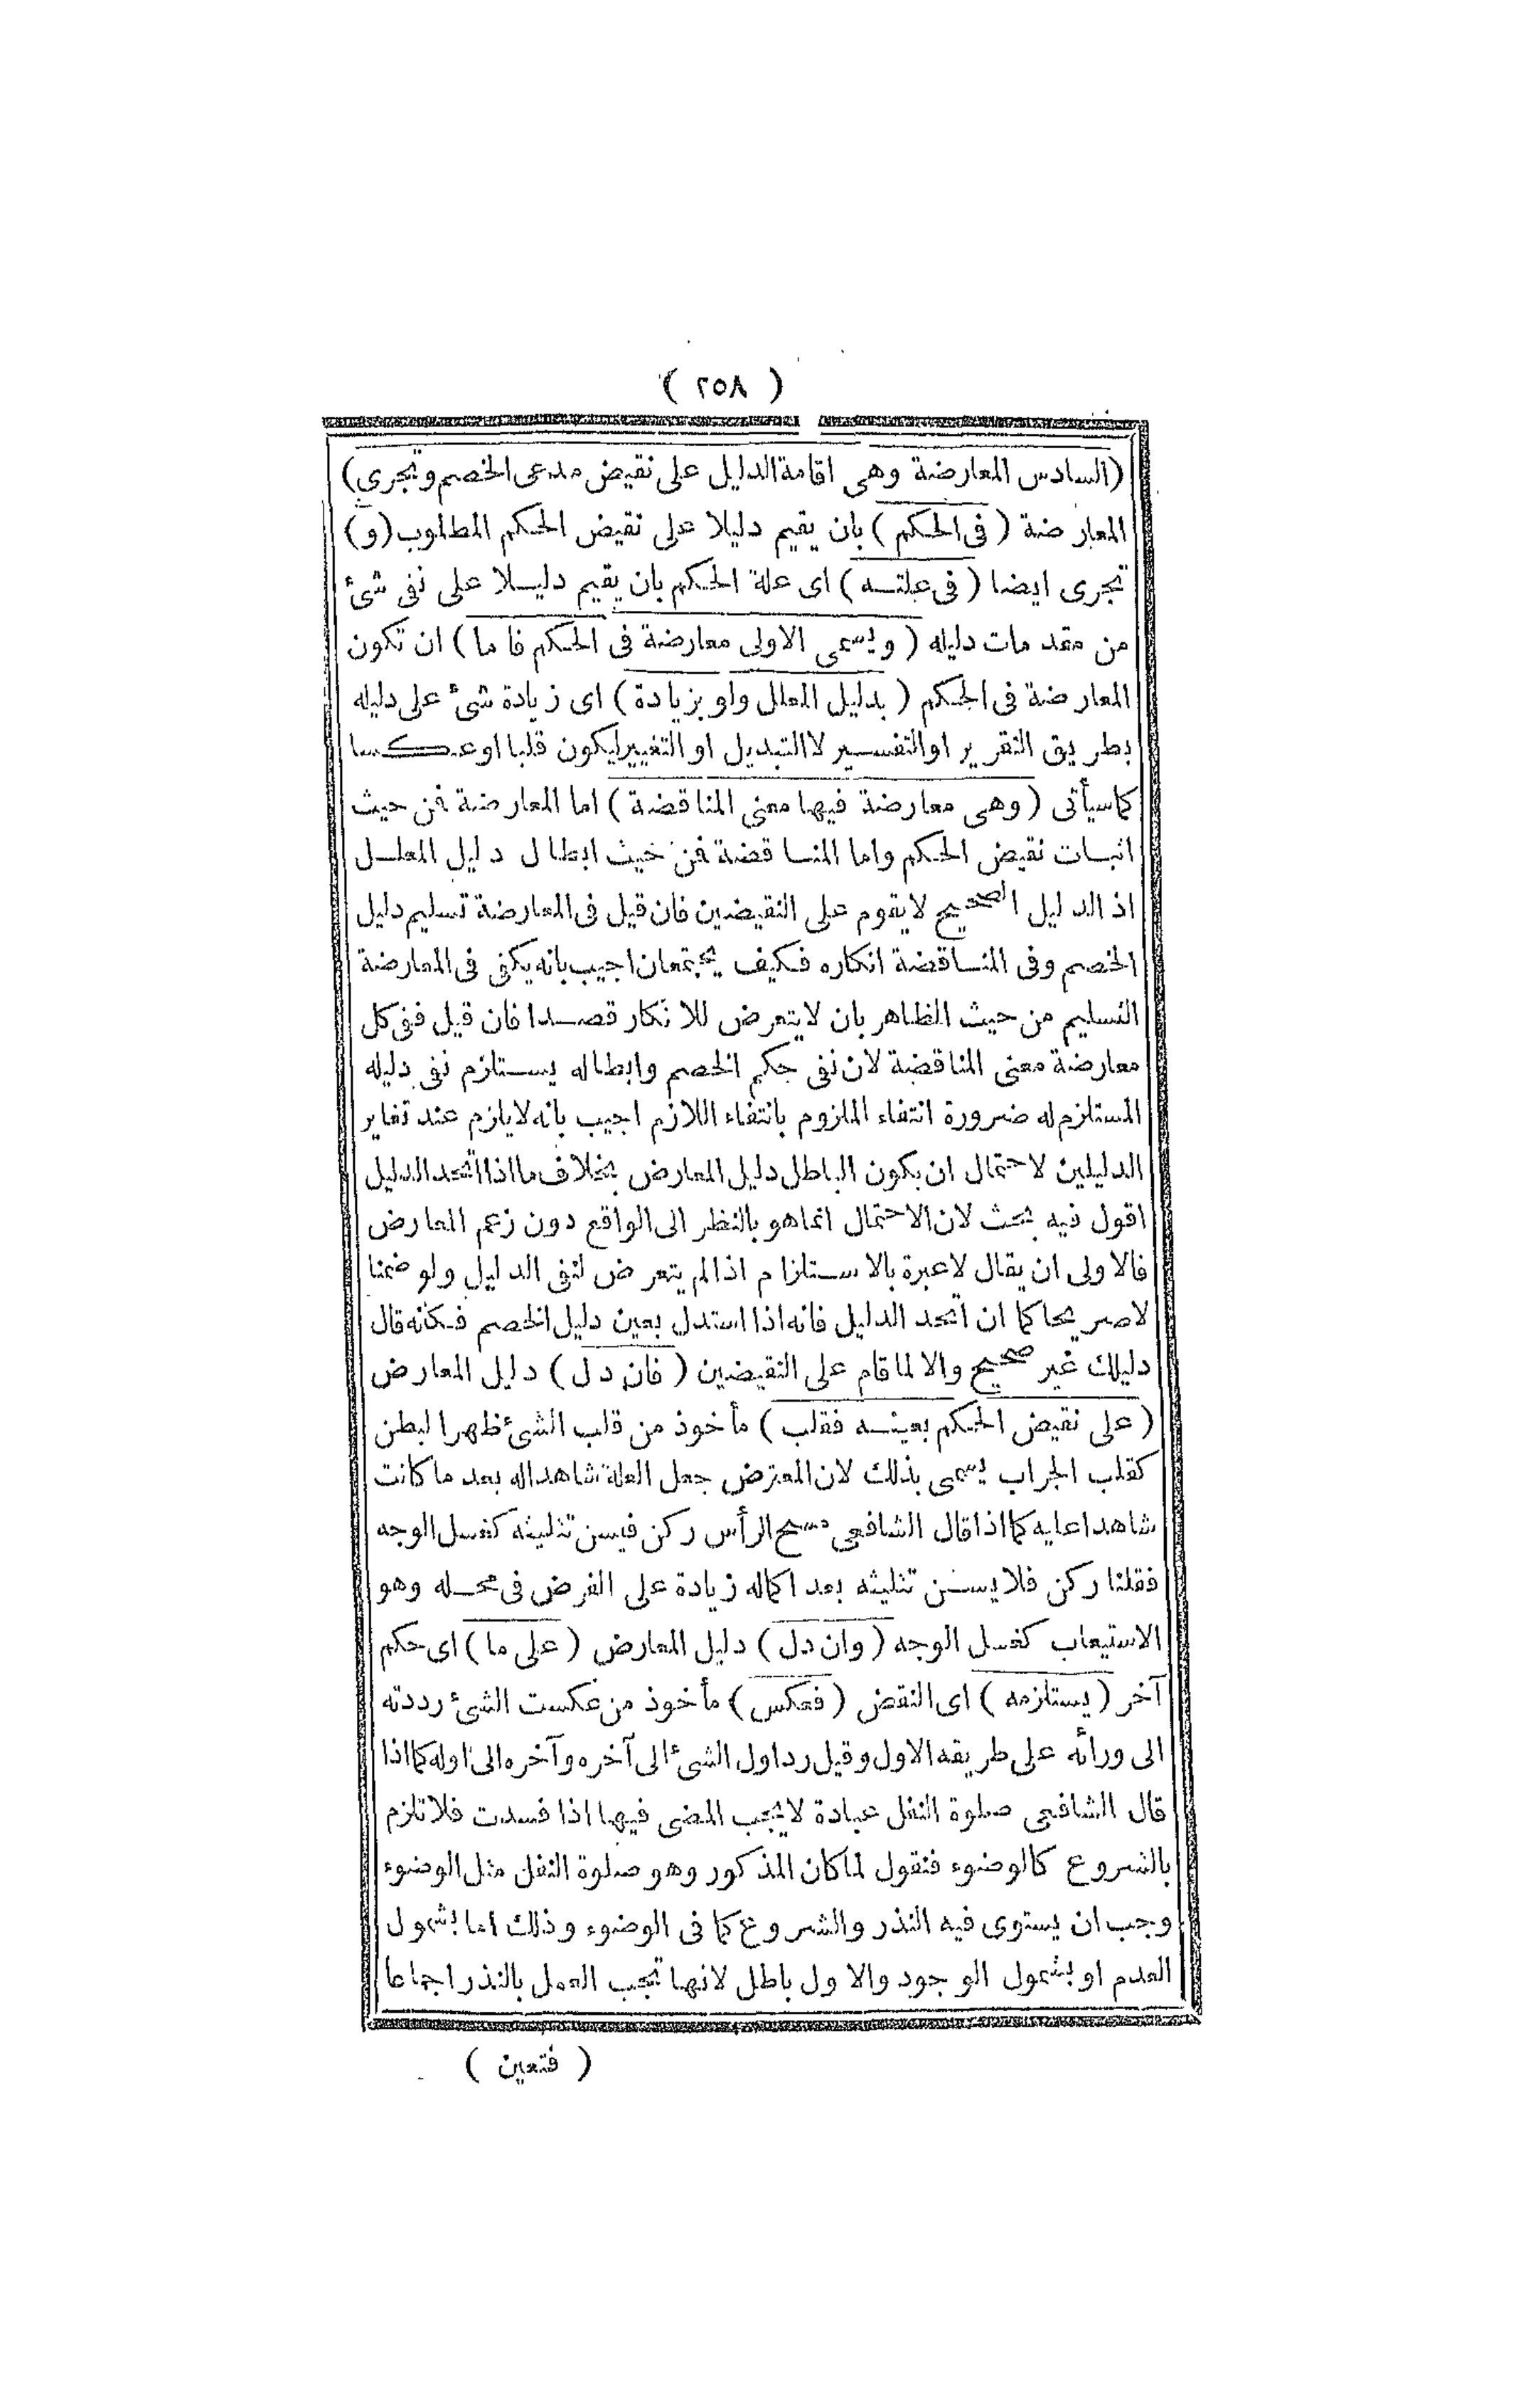 ( ٢٥٨ )
(السادس المعارضة وهى اقامة الدليل على نقيض مدعى الخصم وتجرى)
المعارضة ( فى الحكم ) بان يقيم دليلا على نقيض الحكم المطلوب (و)
تجرى ايضا ( فى علته ) اى علة الحكم بان يقيم دليلا على نفى شئ
من مقدمات دليله ( ويسمى الاولى معارضة فى الحكم فاما ) ان تكون
المعارضة فى الحكم ( بدليل المعلل ولو بزيادة ) اى زيادة شئ على دليله
بطريق التقرير او التفسير لا التبديل او التغيير ليكون قلبا او عكسا
كما سيأتى ( وهى معارضة فيها معنى المناقضة ) اما المعارضة فمن حيث
اثبات نقيض الحكم واما المناقضة فمن حيث ابطال دليل المعلل
اذ الدليل الصحيح لا يقوم على النقيضين فان قيل فى المعارضة تسليم دليل
الخصم وفى المناقضة انكاره فكيف يجتمعان اجيب بانه يكفى فى المعارضة
التسليم من حيث الظاهر بان لا يتعرض للانكار قصدا فان قيل ففى كل
معارضة معنى المناقضة لان نفى حكم الخصم وابطاله يستلزم نفى دليله
المستلزم له ضرورة انتفاء الملزوم بانتفاء اللازم اجيب بانه لا يلزم عند تغاير
الدليلين لاحتمال ان يكون الباطل دليل المعارض بخلاف ما اذا اتحد الدليل
اقول فيه بحث لان الاحتمال انما هو بالنظر الى الواقع دون زعم المعارض
فالاولى ان يقال لا عبرة بالاستلزام اذا لم يتعرض لنفى الدليل ولو ضمنا
لا صريحا كما ان اتحد الدليل فانه اذا استدل بعين دليل الخصم فكأنه قال
دليلك غير صحيح والا لما قام على النقيضين ( فان دل ) دليل المعارض
( على نقيض الحكم بعينه فقلب ) مأخوذ من قلب الشئ ظهرا لبطن
كقلب الجراب يسمى بذلك لان المعترض جعل العلة شاهدا له بعد ما كانت
شاهدا عليه كما اذا قال الشافعى مسح الرأس ركن فيسن تثليثه كغسل الوجه
فقلنا ركن فلا يسن تثليثه بعد اكماله زيادة على الفرض فى محله وهو
الاستيعاب كغسل الوجه ( وان دل ) دليل المعارض ( على ما ) اى حكم
آخر ( يستلزمه ) اى النقض ( فعكس ) مأخوذ من عكست الشئ رددته
الى ورائه على طريقه الاول وقيل رد اول الشئ الى آخره وآخره الى اوله كما اذا
قال الشافعى صلوة النفل عبادة لا يجب المضى فيها اذا فسدت فلا تلزم
بالشروع كالوضوء فنقول لما كان المذكور وهو صلوة النفل مثل الوضوء
وجب ان يستوى فيه النذر والشروع كما فى الوضوء وذلك اما بشمول
العدم او بشمول الوجود والاول باطل لانها تجب العمل بالنذر اجماعا
( فتعين )